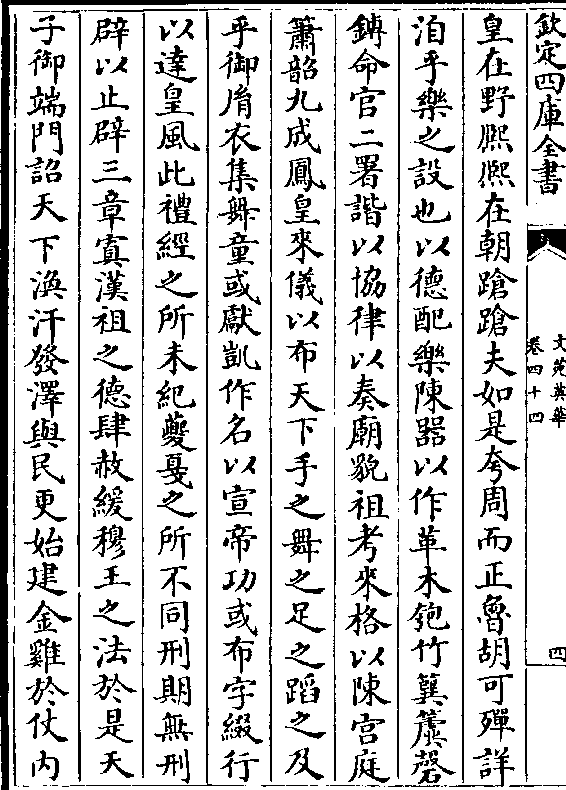 欽定四庫全書
文苑英華
卷四十四
四
皇在野熈熈在朝蹌蹌夫如是夸周而正魯胡可殫詳
洎乎樂之設也以德配樂陳器以作革木匏竹簨簴磬
鏄命官二署諧以協律以奏廟貌祖考來格以陳宫庭
簫韶九成鳳皇來儀以布天下手之舞之足之蹈之及
乎御宵衣集舞童或獻凱作名以宣帝功或布字綴行
以達皇風此禮經之所未紀夔戛之所不同刑期無刑
辟以止辟三章寘漢祖之德肆赦緩穆王之法於是天
子御端門詔天下渙汗發澤與民更始建金雞於仗内